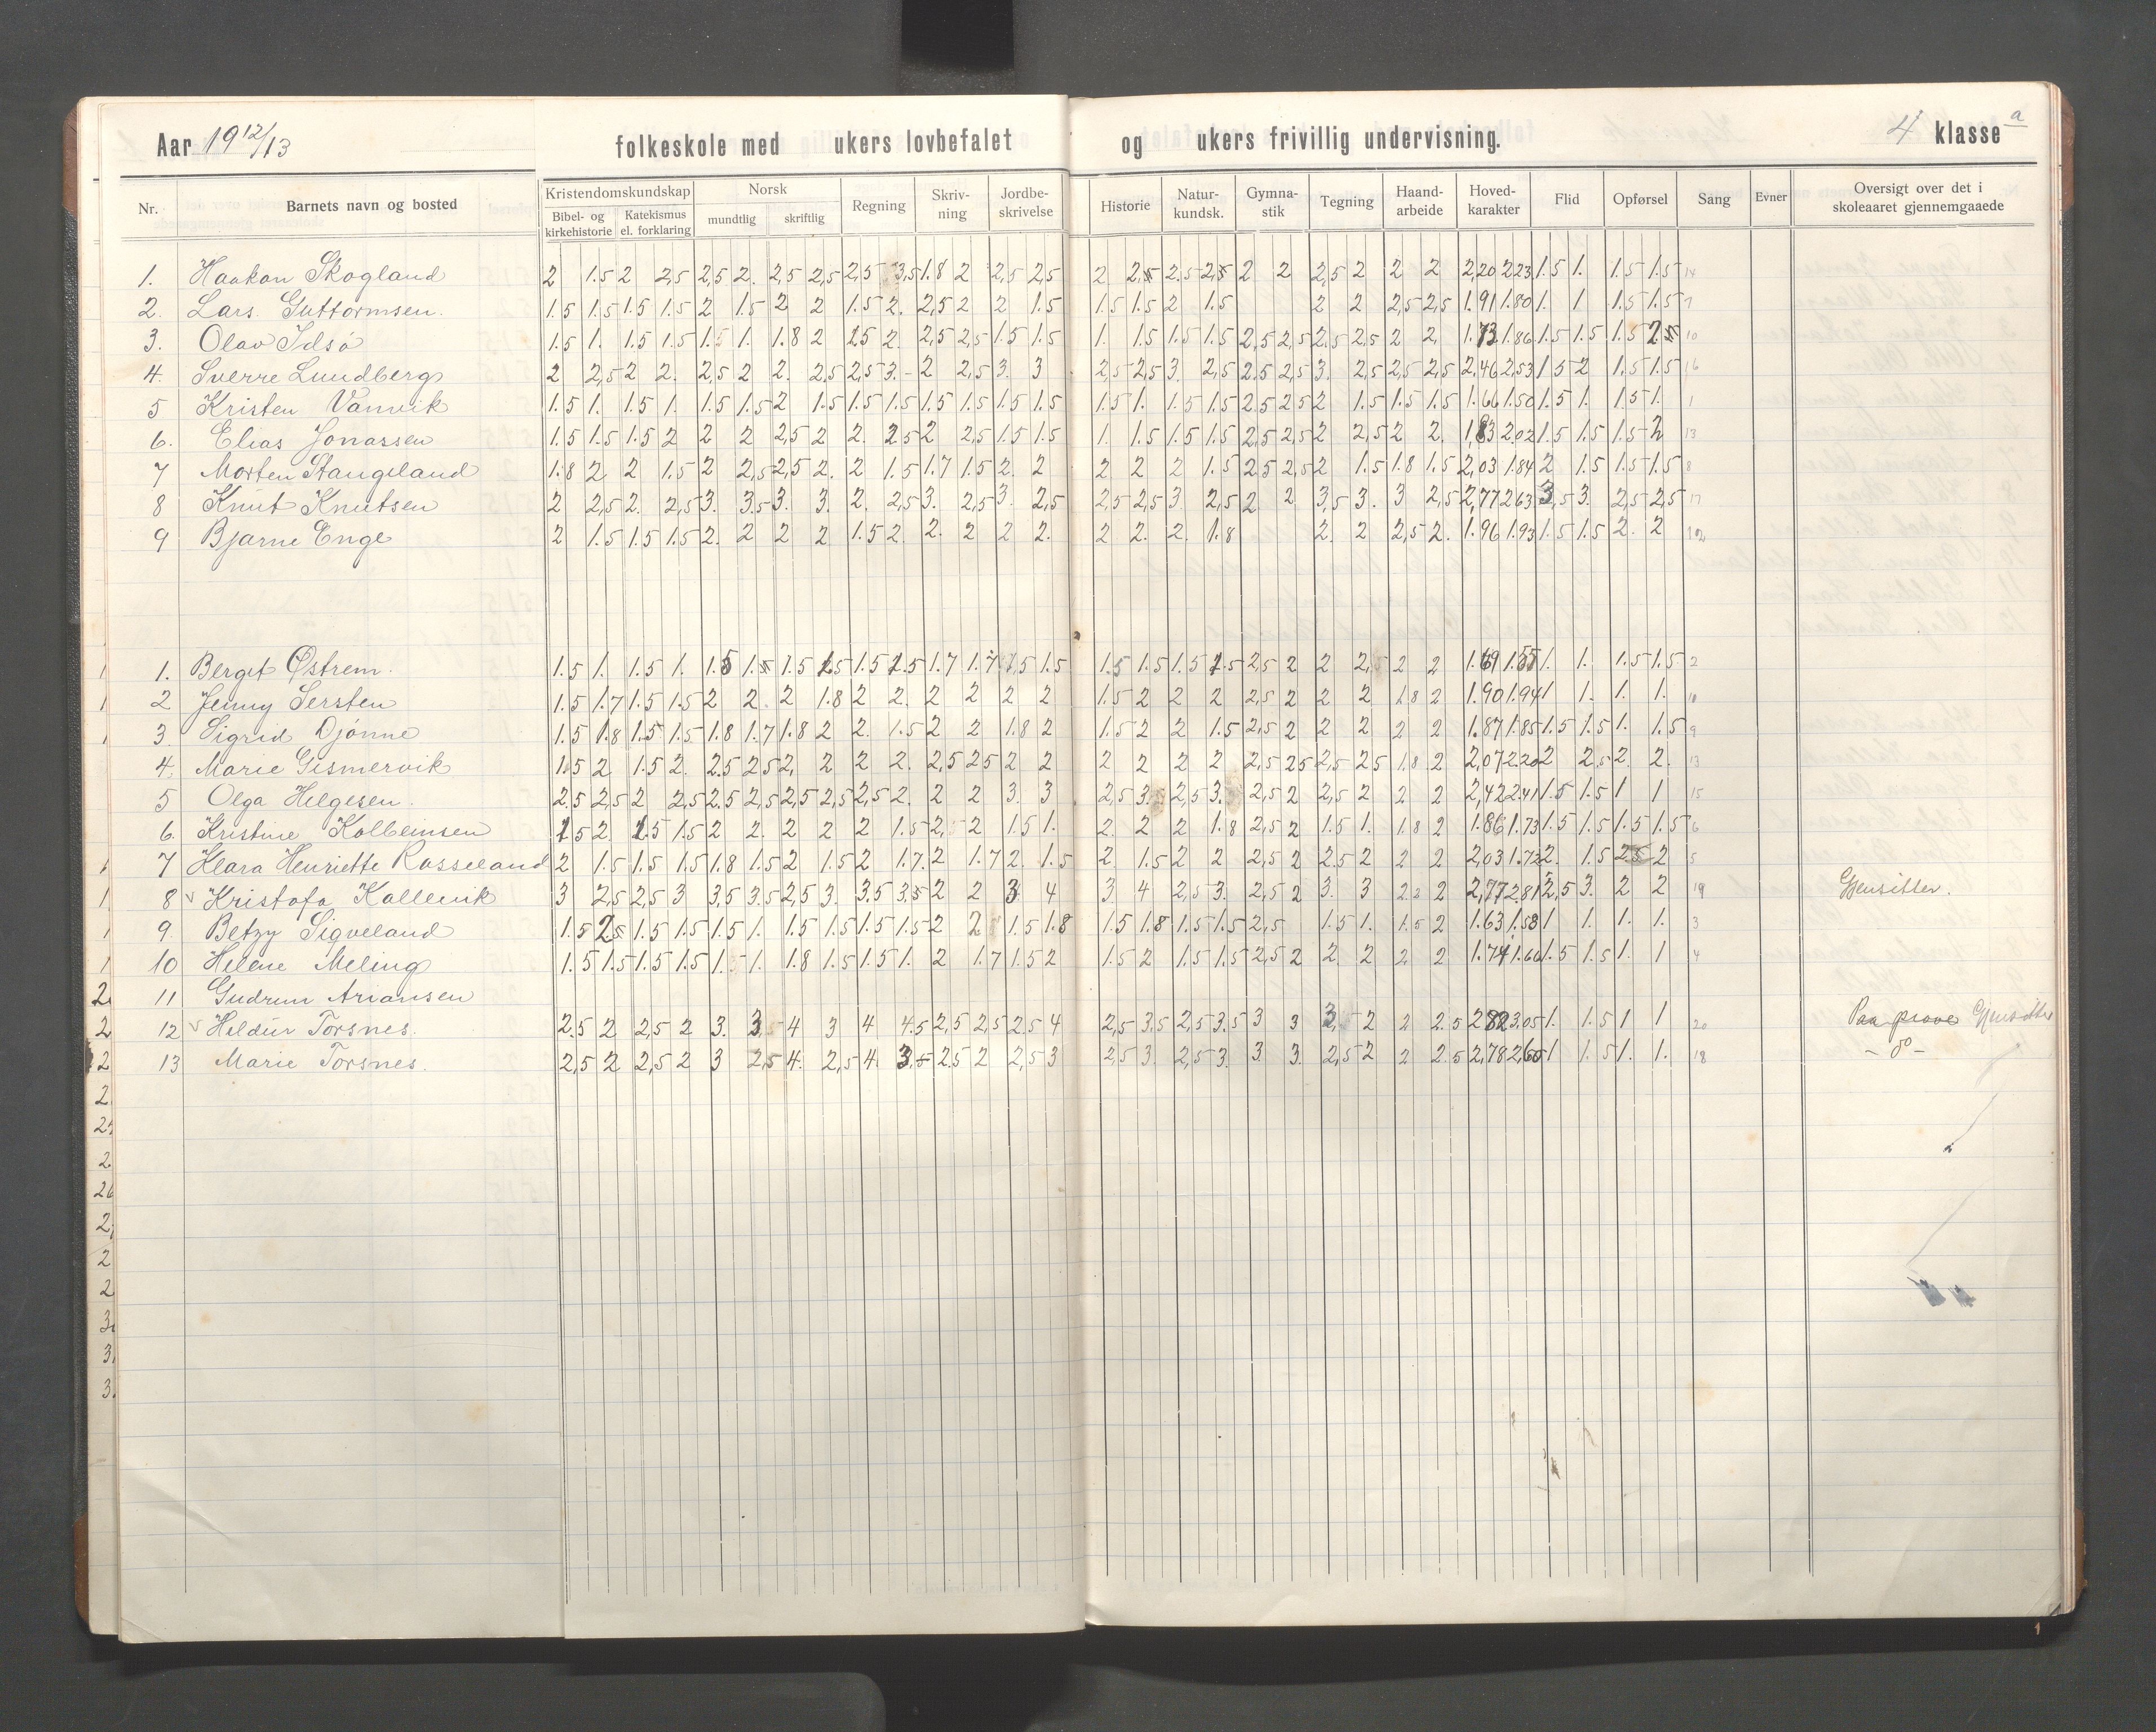 Aar 1912/13 folkeskole med ukers lovbefalet og ukers frivillig undervisning. 4 klasse a
Nr. Barnets navn og bosted Kristendomskundskap Bibel- og kirkehistorie Katekismus el. forklaring Norsk mundtlig skriftlig Regning Skriv-ning Jordbe-skrivelse Historie Natur-kundsk. Gymna-stik Tegning Haand-arbeide Hoved-karakter Flid Opførsel Sang Evner Oversigt over det i skoleaaret gjennemgaaede
1. Haakon Skogland 2 1.5 2 2,5 2,5 2. 2,5 2,5 2,5 3,5 1.8 2 2,5 2,5 2 2,5 2.5 2,5 2 2 2,5 2 2 2 2,20 2.23 1.5 1. 1.5 1.5 14
2. Lars Guttormsen. 1.5 1.5 1.5 1.5 2 1.5 2 2 1.5 2. 2,5 2 2 1.5 1.5 1.5 2 1.5 2 2 2,5 2,5 1.91 1.80 1. 1 1.5 1.5 7
3. Olav Idsø 1.5 1. 1.5 1.5 1.5 1. 1.8 2 2.5 2. 2,5 2,5 1.5 1.5 1. 1.5 1.5 1.5 2,5 2,5 2.5 2.5 2 2. 1.73 1.86 1.5 1.5 1.5 2.5 10
4. Sverre Lundberg 2 2,5 2 2. 2,5 2 2. 2.5 2,5 3. 2 2.5 3. 3 2,5 2,5 3. 2,5 2.5 2,5 3. 2,5 2,5 2,5 2.46 2,53 1.5 2 1.5 1.5 16
5 Kristen Vannvik 1.5 1. 1.5 1. 1.5 1.5 2 1.5 1.5 1.5 1.5 1.5 1.5 1.5 1.5 1. 1.5 1.5 2.5 2.5 2 1.5 1.5 1.5 1.66 1.50 1.5 1. 1.5 1. 1
6. Elias Jonassen 1.5 1.5 1.5 2 2 2 2,5 2 2. 2.5 2 2,5 1.5 1.5 1. 1.5 1.5 1.5 2,5 2,5 2 2,5 2 2. 1.83 2.02 1.5 1.5 1.5 2 13
7 Morten Stangeland 1.8 2 2 1.5 2 2,5 2,5 2. 2 1.5 1.7 1.5 2. 2 2 2 2 1.5 2.5 2,5 2 1.5 1.8 1.5 2,03 1.84 2 1.5 1.5 1.5 8
8 Knut Knutsen 2 2,5 2. 2,5 3. 3.5 3. 3. 2. 2,5 3. 2.5 3. 2,5 2,5 2,5 3 2,5 2 2 3,5 3. 3 2,5 2,77 2.63 3,5 3. 2,5 2,5 17
9 Bjarne Enge 2 1.5 1.5 1.5 2. 2 2 2 1.5 2. 2. 2 2 2. 2 2. 2. 1.8 2. 2 2,5 2. 1.96 1.93 1.5 1.5 2. 2 12
1. Berget Østrem. 1.5 1. 1.5 1. 1.5 1.5 1.5 1.5 1.5 1.5 1.7 1.7 1,5 1.5 1.5 1.5 1.5 1.5 2,5 2 2 2,5 2 2 1.69 1.55 1. 1. 1.5 1.5 2
2 Jenny Sersten 1.5 1.7 1.5 1.5 2 2 2 1.8 2 2. 2 2 2 2 1.5 2 2 2 2,5 2 2 2 1.8 2 1.90 1.94 1 1. 1. 1. 10
3. Sigrid Djønne 1.5 1.8 1.5 1.5 1.8 1.7 1.8 2 2. 1.5 2 2 1.8 2 1.5 2 2 1.5 2,5 2 2 2 2 2 1.87 1.85 1.5 1.5 1. 1.5 9
4. Marie Gismervik 1.5 2 1.5 2. 2.5 2.5 2. 2 2 2. 2,5 2.5 2 2 2 2 2 2 2,5 2.5 2,5 2.5 1.8 2 2,07 2.20 2 2.5 2. 2. 13
5 Olga Helgesen. 2.5 2,5 2 2,5 2.5 2,5 2,5 2,5 2,5 2. 2 2 3. 3 2,5 3. 2,5 3. 2,5 2 2,5 2 2 2 2,42 2.41 1.5 1.5 1 1 15
6. Kristine Kolbeinsen 1.5 2. 1.5 1.5 2 2. 2 2 2 1.5 2. 2 1.5 1. 2. 2 2 1.8 2,5 2 1.5 1. 1.8 2 1.86 1.73 1.5 1.5 1.5 1.5 6
7 Klara Henriette Rosseland 2 1.5 1.5 1.5 1.8 1.5 2 1.5 2 1.7. 2 1.7 2. 1.5 2. 1.5 2 2 2,5 2 2.5 2 2 2 2,03 1.73 2. 1.5 2.5 2 5
8 v Kristofa Kallevik 3 2,5 2,5 3 3,5 3.5 2,5 3. 3.5 3.5 2 2 3 4 3 4 2,5 3. 2,5 2 3. 3 2 2 2,77 2.81 2,5 3. 2 2 19 Gjensitter.
9 Betzy Sigveland 1.5 2.5 1.5 1.5 1.5 1. 1.5 1.5 1.5 1.5 2 2 1.5 1.8 1.5 1.8 1.5 1.5 2,5 1.5 1. 1.5 2 1.63 1.58 1 1. 1. 1. 3
10 Helene Meling 1.5 1.5 1.5 1.5 1.5 1. 1.8 1.5 1.5 1. 2 1.7 1.5 2 1.5 2 1.5 1.5 2,5 2 2 2 2 2 1.74 1.66 1.5 1.5 1. 1 4
11 Gudrun Ariansen
12 v Heldur Torsnes. 2.5 2 2,5 2 3. 3,5 4 3 4 4.5 2,5 2,5 2.5 4 2,5 3.5 2,5 3.5 3 3 3.5 2 2 2.5 2.82 3.05 1. 1.5 1 1 20 Paa prøve Gjensitter
13 Marie Torsnes. 2,5 2 2,5 2 3 2,5 4. 2,5 4. 3.5 2.5 2 2,5 3 2.5 3. 2,5 3. 3 3. 2,5 2 2 2.5 2,78 2,60 1 1.5 1. 1. 18 - do -